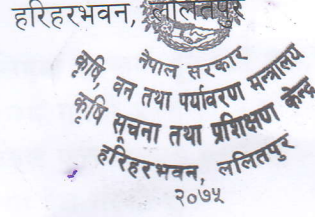 हरिहरभवन, ललितपुर
नेपाल सरकार
कृषि, वन तथा पर्यावरण मन्त्रालय
कृषि सूचना तथा प्रशिक्षण केन्द्र
हरिहरभवन, ललितपुर
२०७५